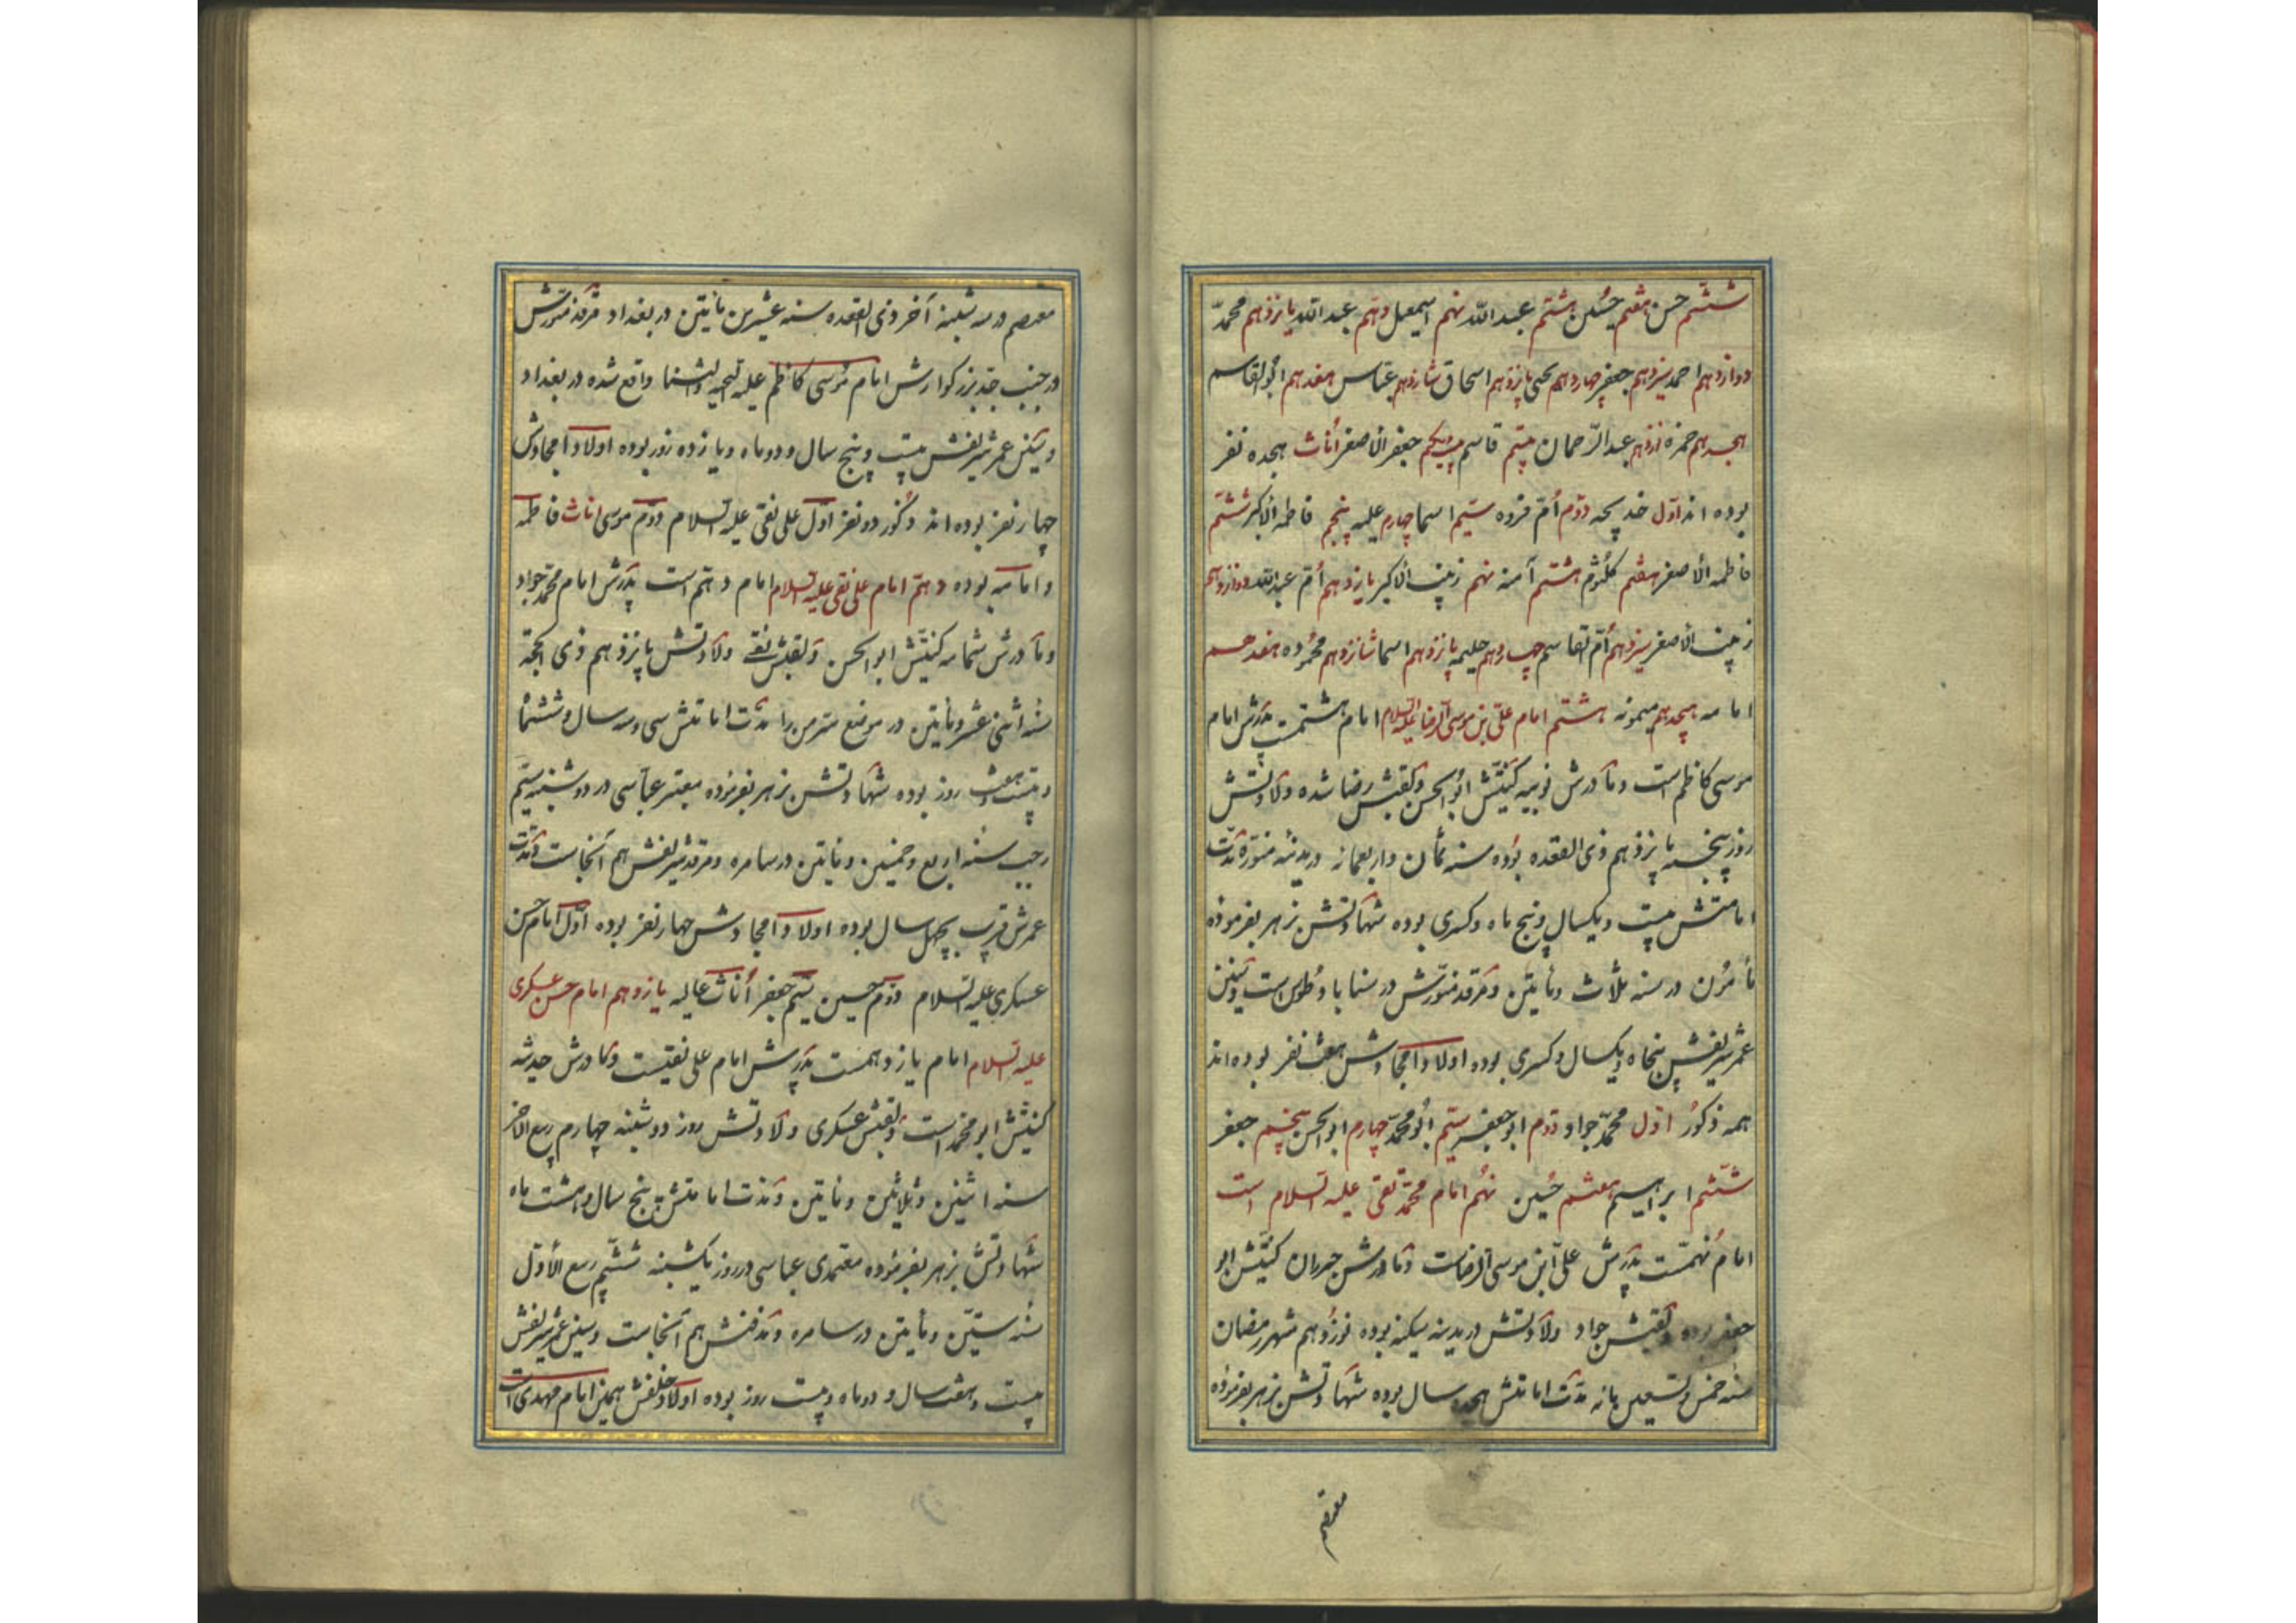 ششم حسن هفتم حسین هشتم عبدالله نهم اسمعیل دهم عبدالله یازدهم محمد
دوازدهم احمد سیزدهم جعفر چهاردهم یحیی پانزدهم اسحاق شانزدهم عباس هفدهم ابوالقاسم
هجدهم حمزه نوزدهم عبدالرحمان بیستم قاسم بیست ویکم جعفر الاصغر اناث هجده نفر
بوده اند اول خدیجه دوم ام فروه سیم اسما چهارم علیه پنجم فاطمه الاکبر ششم
فاطمه الاصغر هفتم کلثوم هشتم آمنه نهم زینب الاکبر یازدهم ام عبدالله دوازدهم
زینب الاصغر سیزدهم ام القاسم چهاردهم حلیمه پانزدهم اسما شانزدهم محموده هفدهم
امامه هیجدهم میمونه هشتم امام علی بن موسی الرضا علیه السلام امام هشتمست پدرش امام
موسی کاظم است و مادرش نوبیه کنیتش ابوالحسن و لقبش رضا شده ولادتش
روز پنجشنبه پانزدهم ذی القعده بوده سنه ثمان واربعمائه در مدینه منوره مدت
امامتش بیست و یکسال و پنج ماه و کسری بوده شهادتش بزهر بفرموده
مأمون در سنه ثلاث و مأیتین و مرقد منورش در سناباد طوس است و سنین
عمر شریفش پنجاه و یکسال و کسری بوده اولاد و امجادش هفت نفر بوده اند
همه ذکور اول محمد جواد دوم ابو جعفر سیم ابو محمد چهارم ابوالحسن پنجم جعفر
ششم ابراهیم هفتم حسین نهم امام محمد تقی علیه السلام است
امام نهمست پدرش علی ابن موسی الرضاست و مادرش کنیتش ابو
جعفر بوده و لقبش جواد ولادتش در مدینه سکینه بوده نوزدهم شهر رمضان
سنه خمس و تسعین مائه مدت امامتش هجده سال بوده شهادتش بزهر بفرموده
معتصم
معتصم در سه شنبه آخر ذی القعده سنه عشرین مأیتین در بغداد مرقد منورش
در جنب جد بزرکوارش امام موسی کاظم علیه التحیه والثنا واقع شده در بغداد
و سنین عمر شریفش بیست و پنج سال و دو ماه و یازده روز بوده اولاد و امجادش
چهار نفر بوده اند ذکور دو نفر اول علی نقی علیه السلام دوم موسی اناث فاطمه
و امامه بوده دهم امام علی نقی علیه السلام امام دهم است پدرش امام محمد جواد
و مادرش شمامه کنیتش ابوالحسن و لقبش نقی ولادتش پانزدهم ذی الحجه
سنه اثنی عشر و مأیتین در موضع سر من را مدت امامتش سی و سه سال و ششماه
و بیست و هفت روز بوده شهادتش بزهر بفرموده معتز عباسی در دوشنبه سیم
رجب سنه اربع و خمسین و مایتین در سامره و مرقد شریفش هم آنجاست و مدت
عمرش قریب بچهل سال بوده اولاد و امجادش چهار نفر بوده اول امام حسن
عسکری علیه السلام دوم حسین سیم جعفر اناث عالیه یازدهم امام حسن عسکری
علیه السلام امام یازدهمست پدرش امام علی نقیست و مادرش حدیثه
کنیتش ابو محمد است و لقبش عسکری ولادتش روز دوشنبه چهارم ربیع الاخر
سنه اثنین و ثلاثین و مأیتین و مدت امامتش پنج سال و هشت ماه
شهادتش بزهر بفرموده معتمدی عباسی در روز یکشنبه ششم ربیع الاول
سنه ستین و مأیتین در سامره و مدفنش هم آنجاست و سنین عمر شریفش
بیست و هفت سال و دو ماه و بیست روز بوده اولاد و خلفش همین امام مهدی است